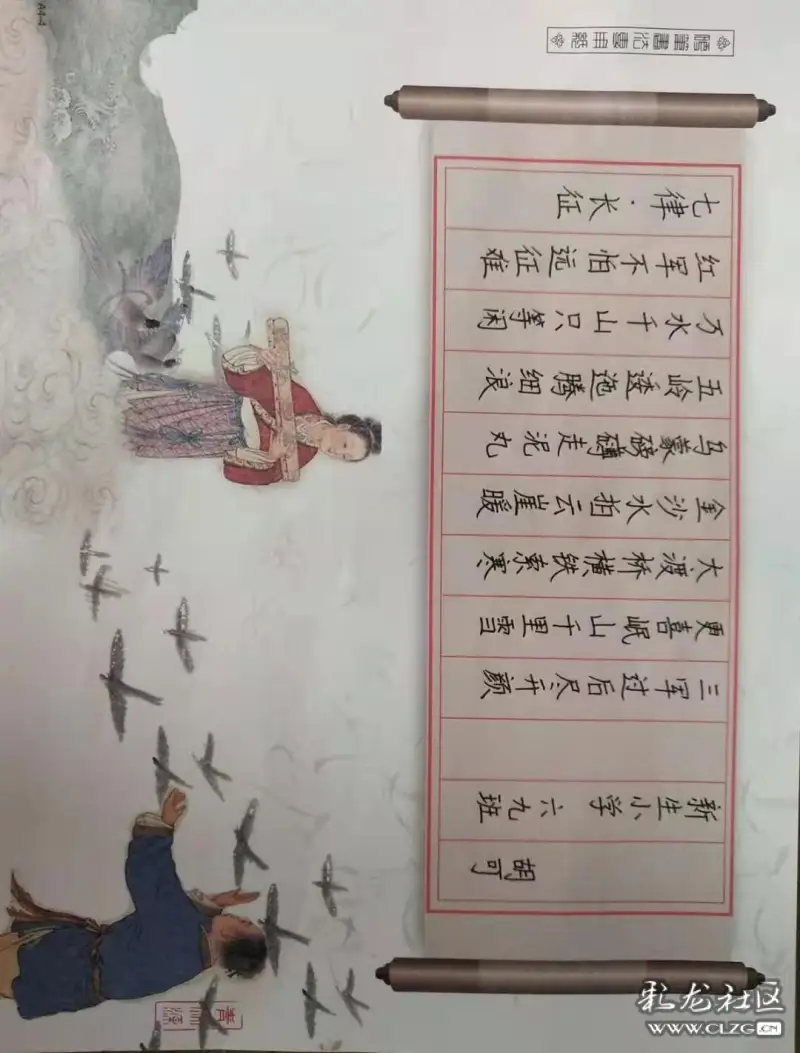 A4-4
七律·长征
红军不怕远征难
万水千山只等闲
五岭逶迤腾细浪
乌蒙磅礴走泥丸
金沙水拍云崖暖
大渡桥横铁索寒
更喜岷山千里雪
三军过后尽开颜
新生小学 六九班
胡可
彩龙社区
WWW.CLZG.CN